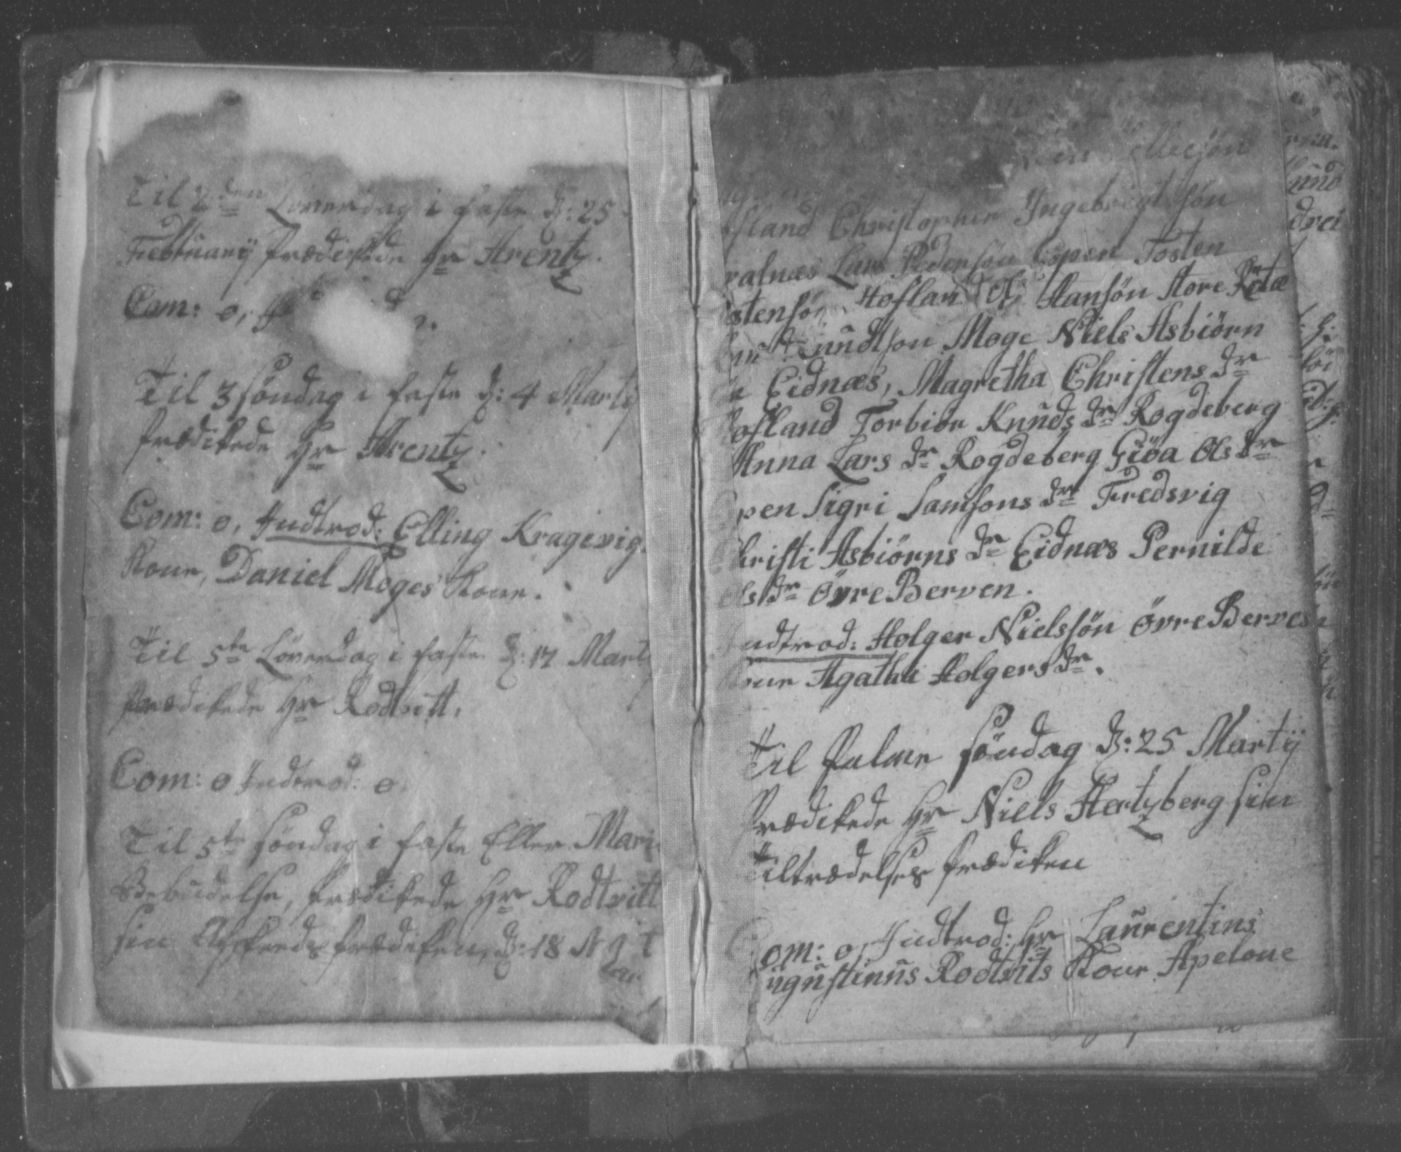 Til 2den Löverdag i faste D: 25
Februarij Prædikede Hr Arentz.
Com: 0,
Til 3 söndag i faste D: 4 Martij
Prædikede Hr Arentz.
Com: 0, Indtrod: Elling Kragevig
Kone, Daniel Moges Kone.
Til 5te Löverdag i faste D: 17 Marti
Prædikede Hr Rodtvitt.
Com: 0 Indtrod: 0
Til 5te söndag i faste Eller Mari
Bebudelse, Prædikede Hr Rodtvitt
sin Afskeds prædiken, D: 18
Ellicsön
sland Christopher Ingebrigt sön
ralnæs Lars Pedersön Espen Tosten
stensön Hofland Ol: Hansön Store
Knudtson Moge Niels Asbiörn
Eidnæs, Magretha Christens dr
ofland Torbiör Knuds dr Rogdeberg
Anna Lars dr Rogdeberg Giöa Ols dr
pen Sigri Samsons dr Fredsvig
hristi Asbiörns dr Eidnæs Pernilde
ls dr Övre Berven.
ndtrod: Holger Nielssön Övre Bervens
Kone Agatha Holgers dr.
Til Palme söndag D: 25 Martij
Prædikede Hr Niels Hertzberg sin
Tiltrædelses prædiken
Com: 0, Indtrod: Hr Laurentius
ugustinus Rodtvits Kone Apelone